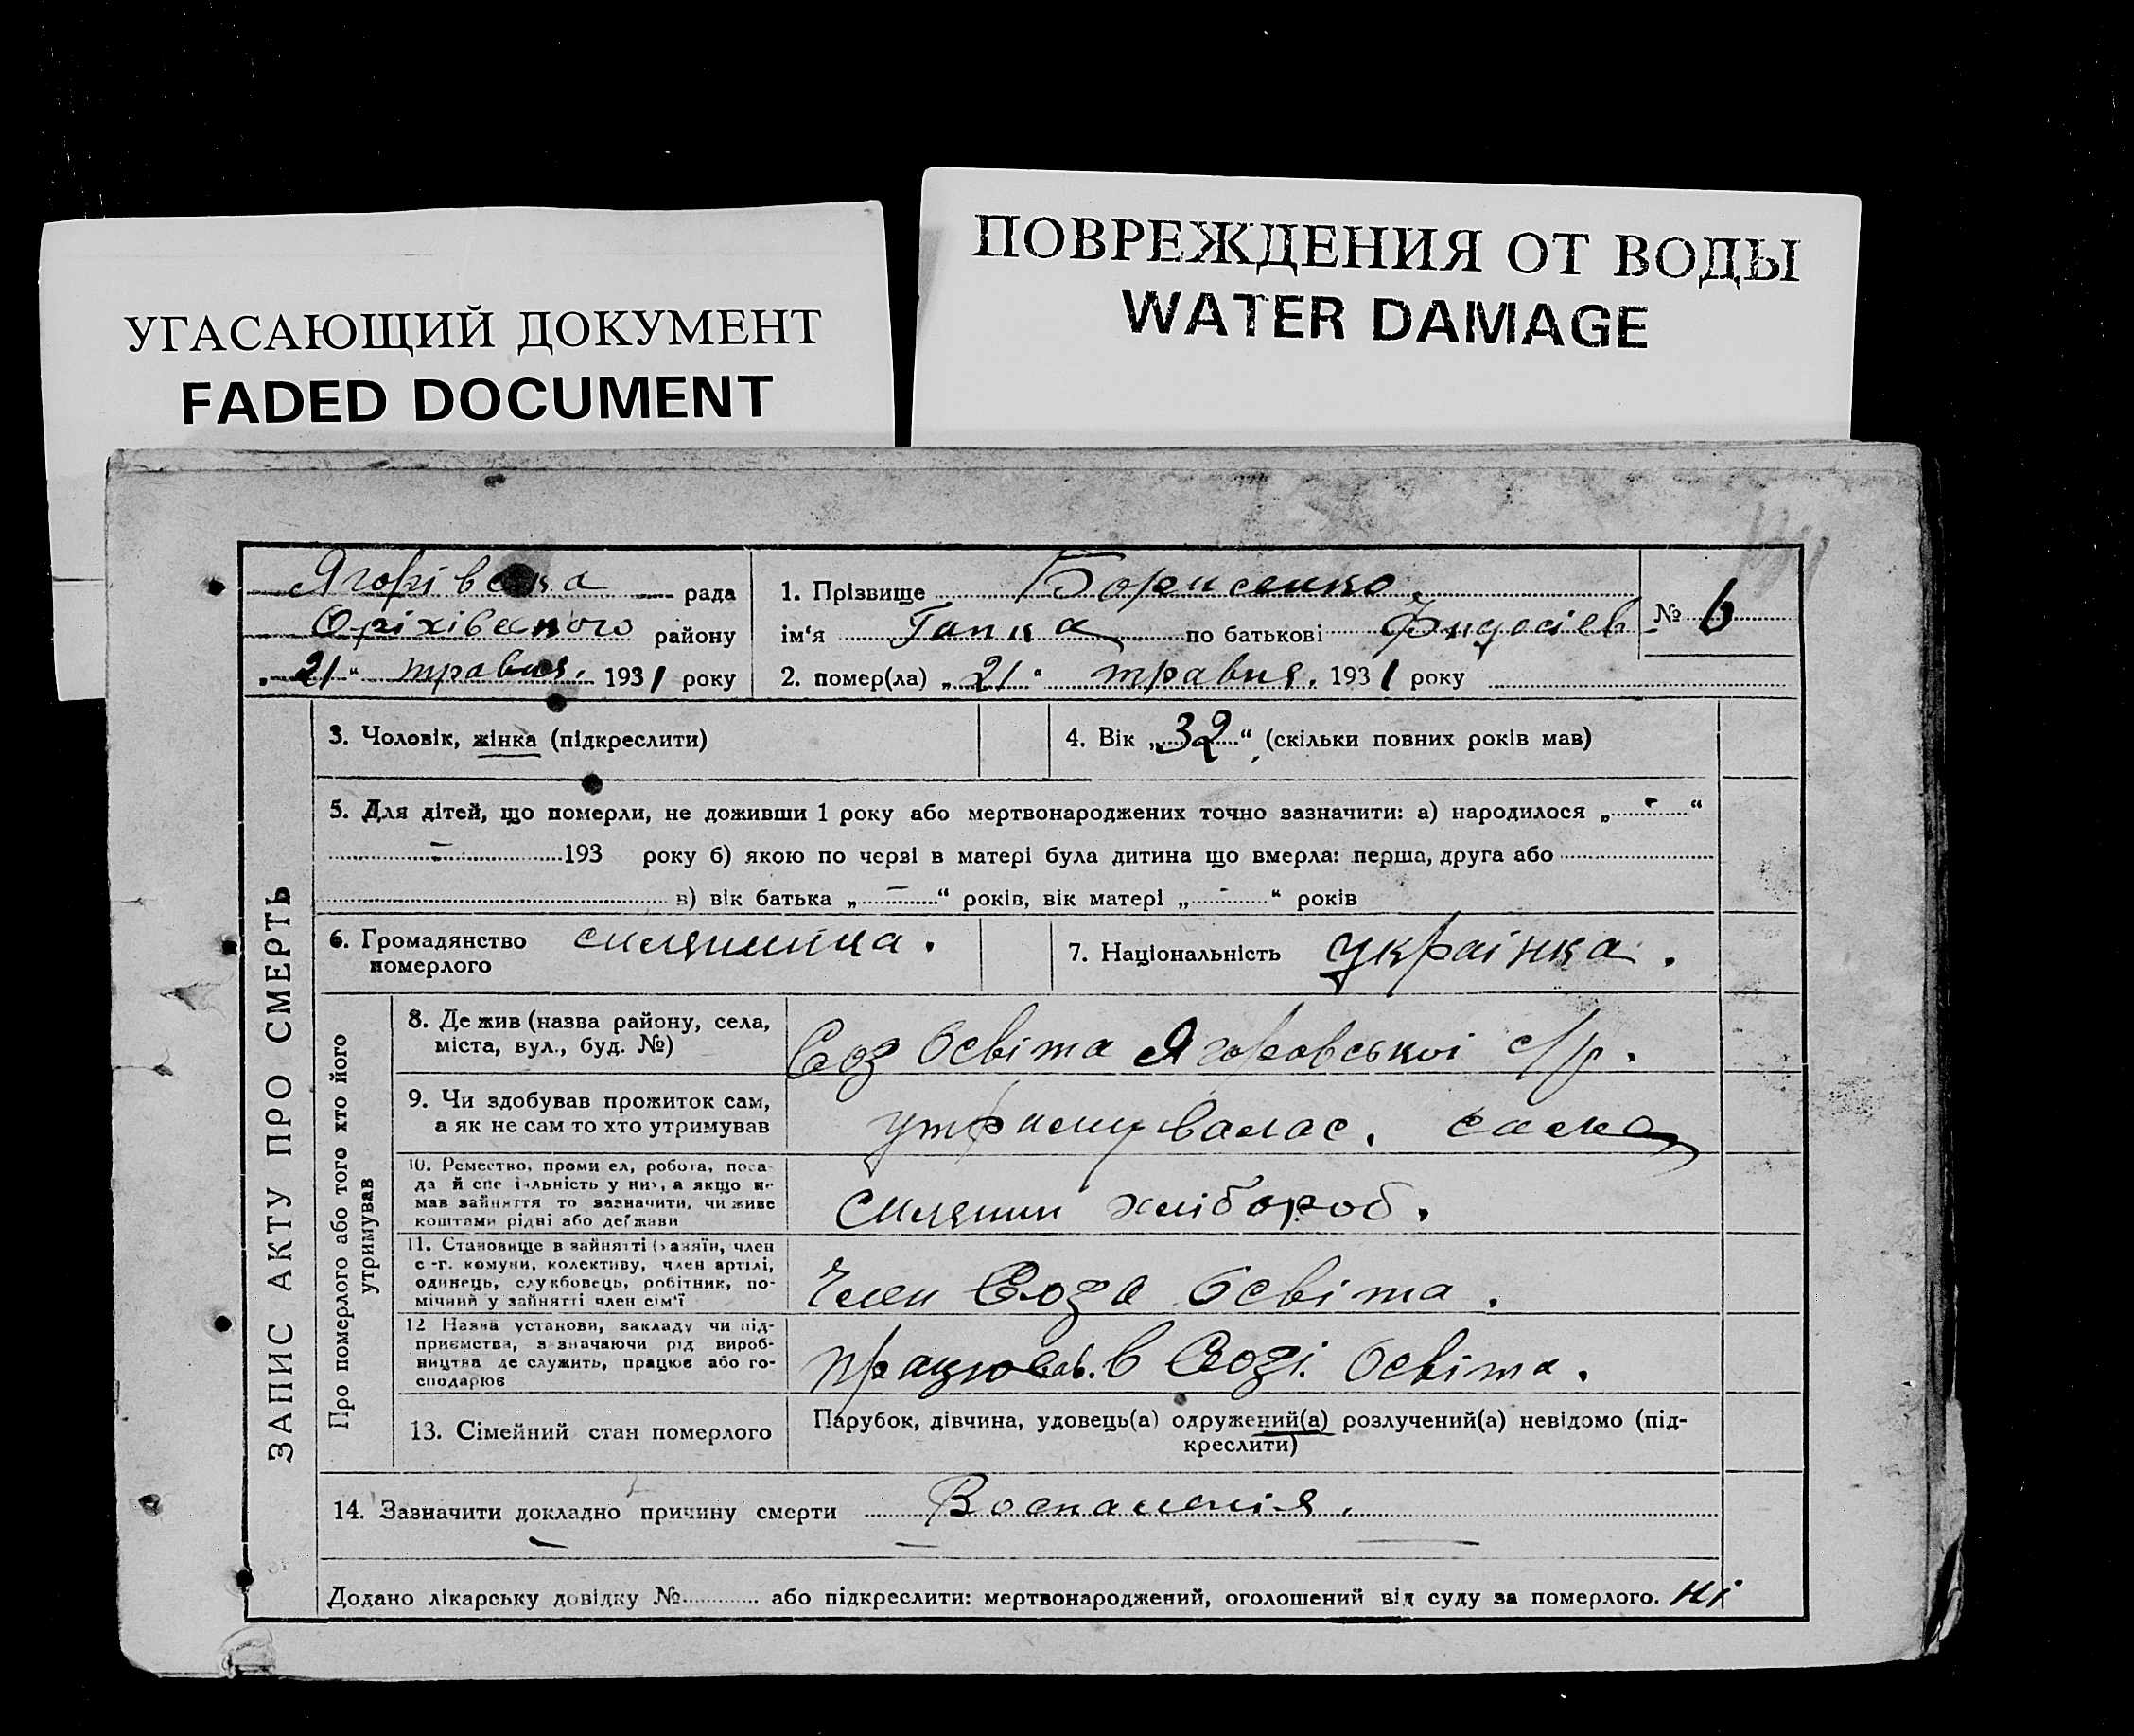 ПОВРЕЖДЕНИЯ ОТ ВОДЫ
WATER DAMAGE
УГАСАЮЩИЙ ДОКУМЕНТ
FADED DOCUMENT
ЗАПИС АКТУ ПРО СМЕРТЬ
Ягорівська рада
Оріхівського району
„21“ травня. 1931 року
1. Прізвище Борисенко.
ім'я Ганка по батькові Фидосіев
№ 6
2. помер(ла) „21“ травня. 1931 року
3. Чоловік, жінка (підкреслити)
4. Вік „32“ (скільки повних років мав)
5. Для дітей, що померли, не доживши 1 року або мертвонароджених точно зазначити: а) народилося „-“
- 193 року б) якою по черзі в матері була дитина що вмерла: перша, друга або
в) вік батька „-“ років, вік матері „-“ років
6. Громадянство померлого
7. Національність українка.
Про померлого або того хто його утримував
8. Де жив (назва району, села,
міста, вул., буд. №)
Соз Освіта Ягоровської с/р.
9. Чи здобував прожиток сам,
а як не сам то хто утримував
утримувалас. сама
10. Ремество, промисел, робота, поса-
да й спеціальність у них, а якщо не
мав зайняття то зазначити, чи живе
коштами рідні або держави
хлібороб.
11. Становище в зайнятті (хазяїн, член
с.-г. комуни, колективу, член артілі,
одинець, службовець, робітник, по-
мічний у зайнятті член сім'ї
Член Соза Освіта.
12 Назва установи, закладу чи під-
приємства, зазначаючи рід вироб-
ництва де служить, працює або го-
сподарює
працював. в Созі. Освіта.
13. Сімейний стан померлого
Парубок, дівчина, удовець(а) одружений(а) розлучений(а) невідомо (під-
креслити)
14. Зазначити докладно причину смерти Воспаленія.
Додано лікарську довідку № або підкреслити: мертвонароджений, оголошений від суду за померлого. ні